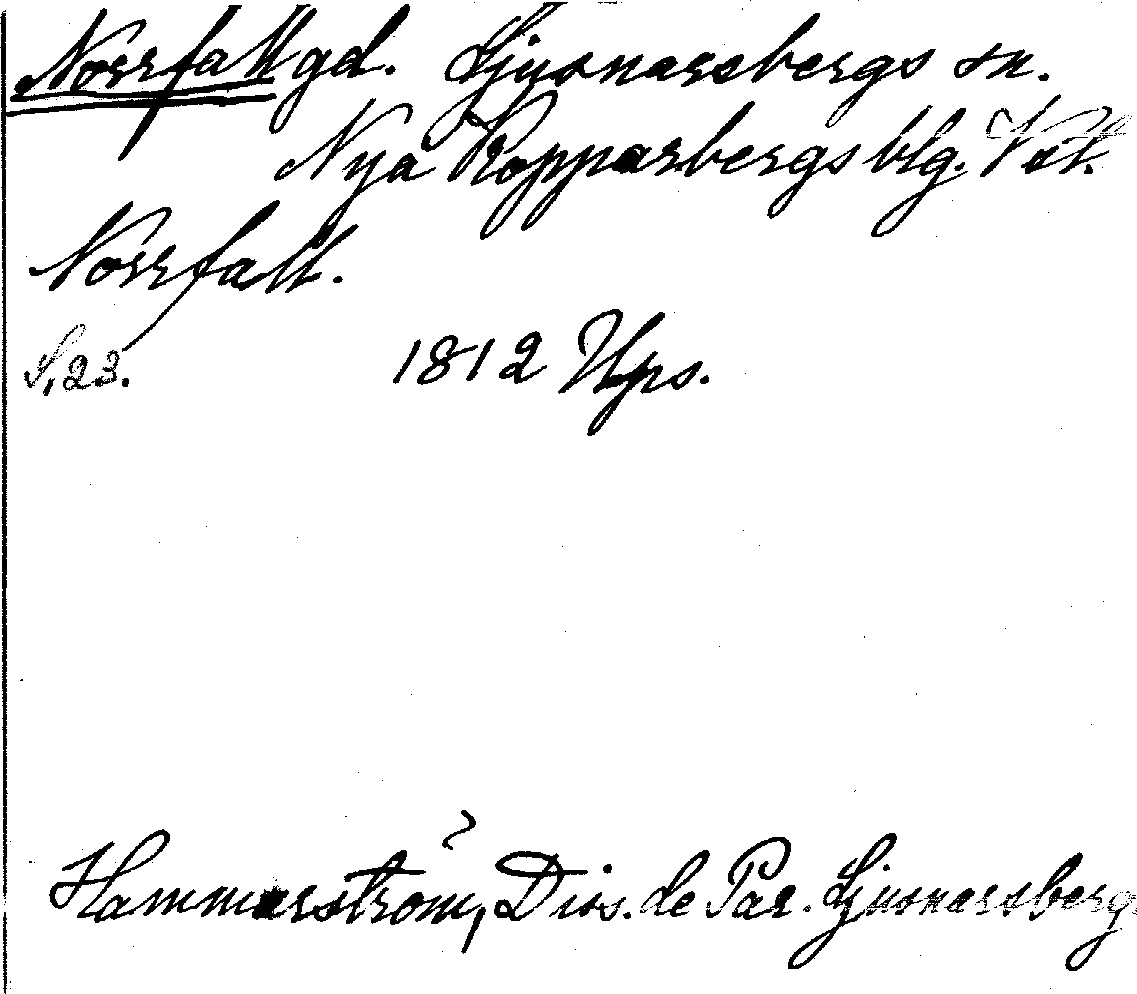 Norrfall gd. Ljusnarsbergs sn.
Nya Kopparbergs blg. Vstl.
Norrfall.
S, 23. 1812 Ups.
Hammarström, Diss. de Par. Ljusnarsberg.